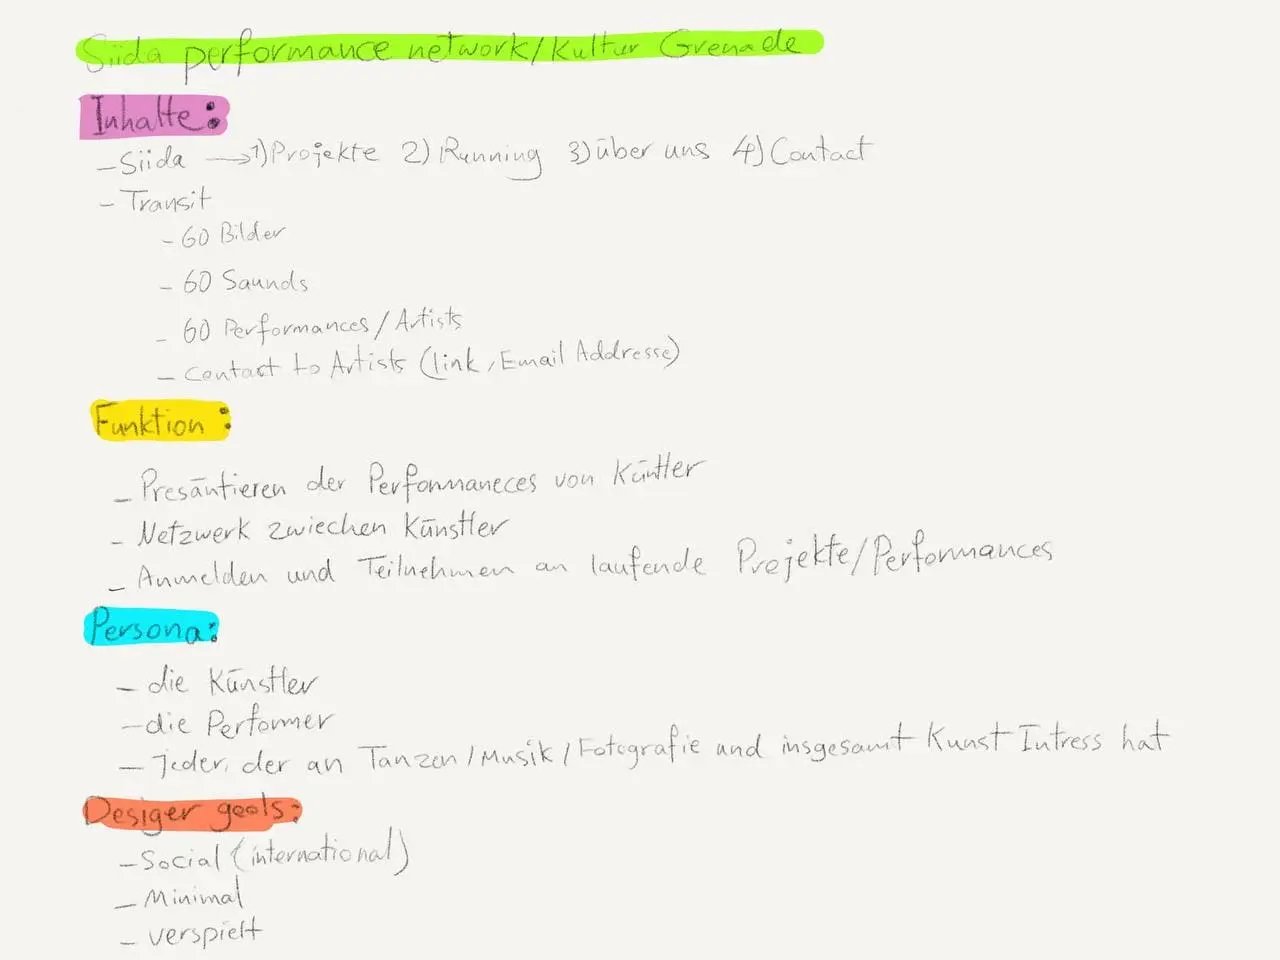 Siida performance network/Kultur Grenade
Inhalte:
- Siida → 1) Projekte 2) Running 3) über uns 4) Contact
- Transit
- 60 Bilder
- 60 Saunds
- 60 Performances/Artists
- Contact to Artists (link, Email Addresse)
Funktion:
- Presäntieren der Performaneces von Küntler
- Netzwerk zwiechen Künstler
- Anmelden und Teilnehmen an laufende Projekte/Performances
Persona:
- die Künstler
- die Performer
- Jeder, der an Tanzen/Musik/Fotografie und insgesamt Kunst Intress hat
Desiger gools:
- Social (international)
- Minimal
- verspielt